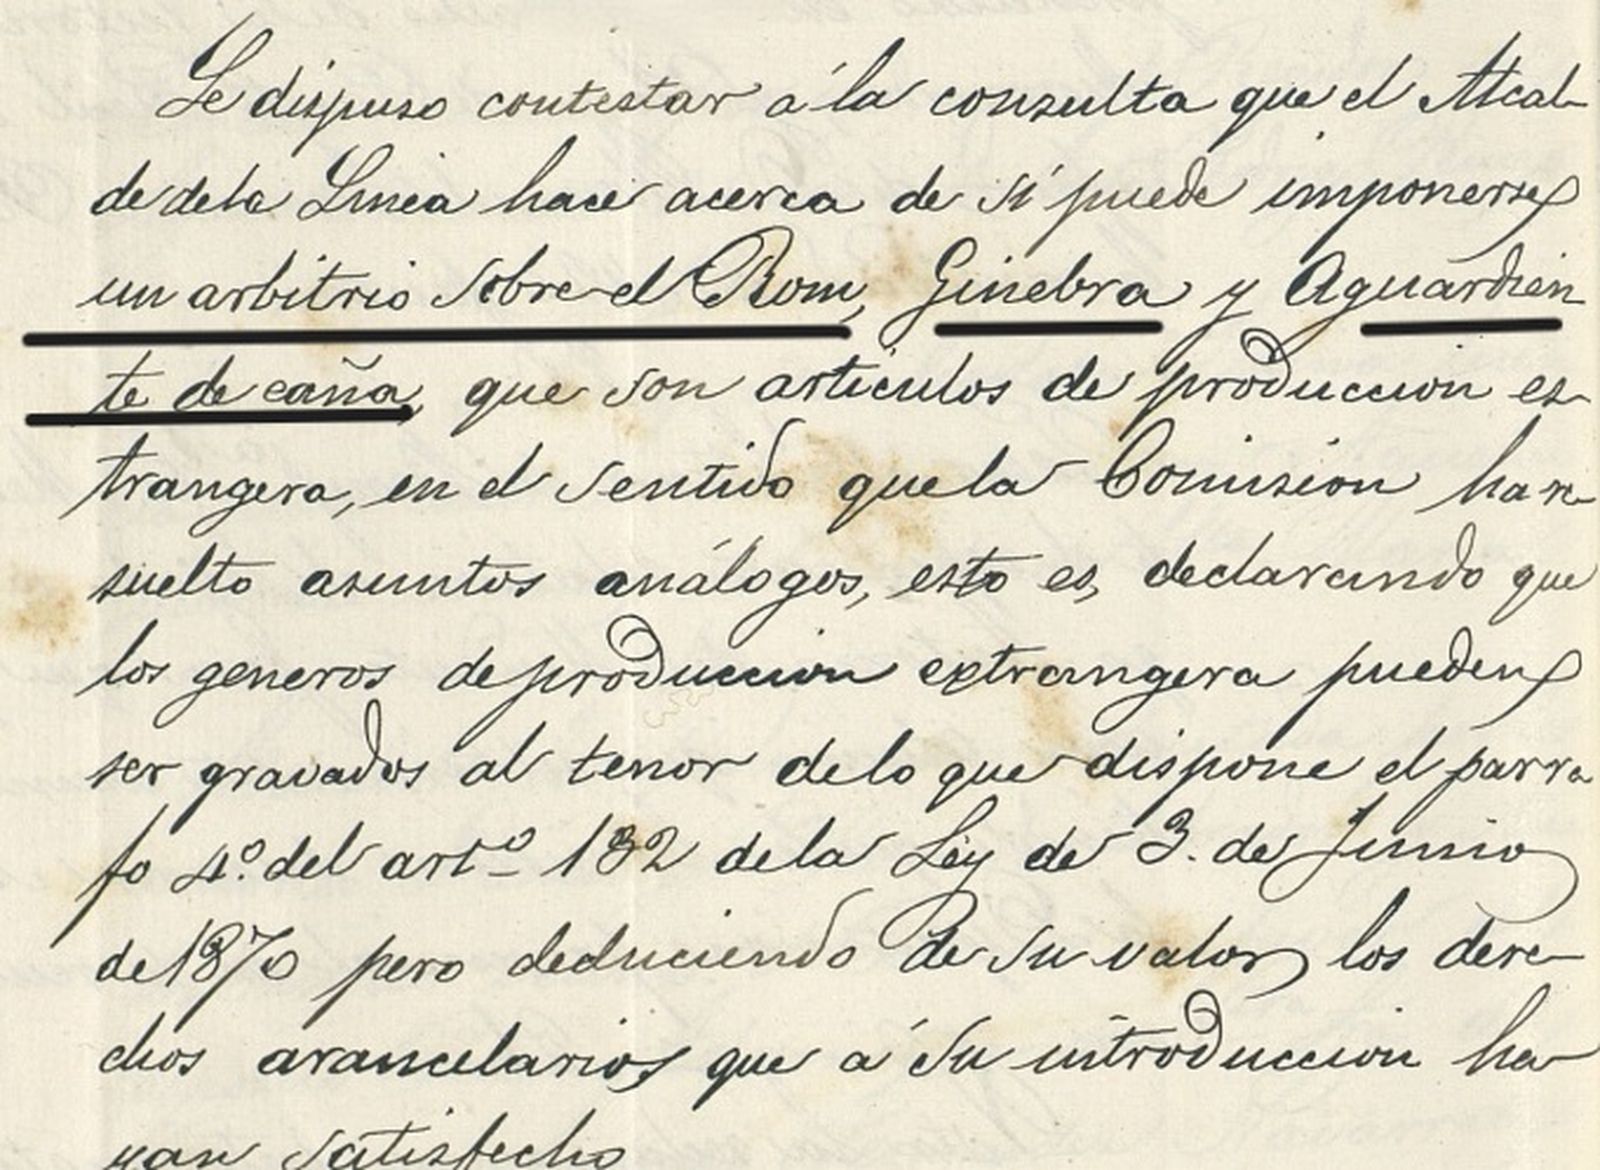 Se dispuso contestar á la consulta que el Alcal-
de de la Linea hace acerca de si puede imponerse
un arbitrio sobre el Rom, Ginebra y Aguardien
te de caña, que son articulos de produccion es-
trangera, en el sentido que la Comision ha re-
suelto asuntos análogos, esto es, declarando que
los generos de produccion extrangera pueden
ser gravados al tenor de lo que dispone el parra
fo 4º. del artº 132 de la Ley de 3. de Junio
de 1870 pero deduciendo de su valor los dere-
chos arancelarios que á su introduccion ha-
yan satisfecho